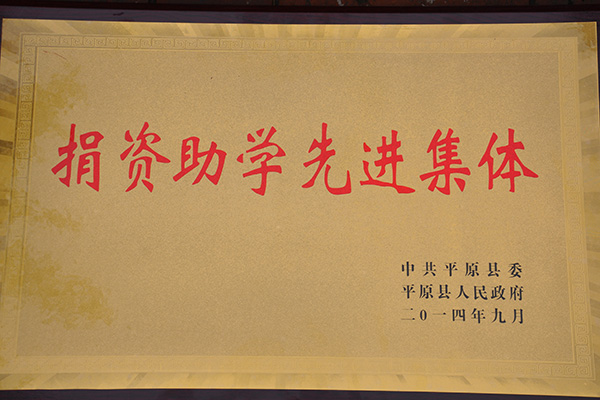 捐资助学先进集体
中共平原县委
平原县人民政府
二0一四年九月